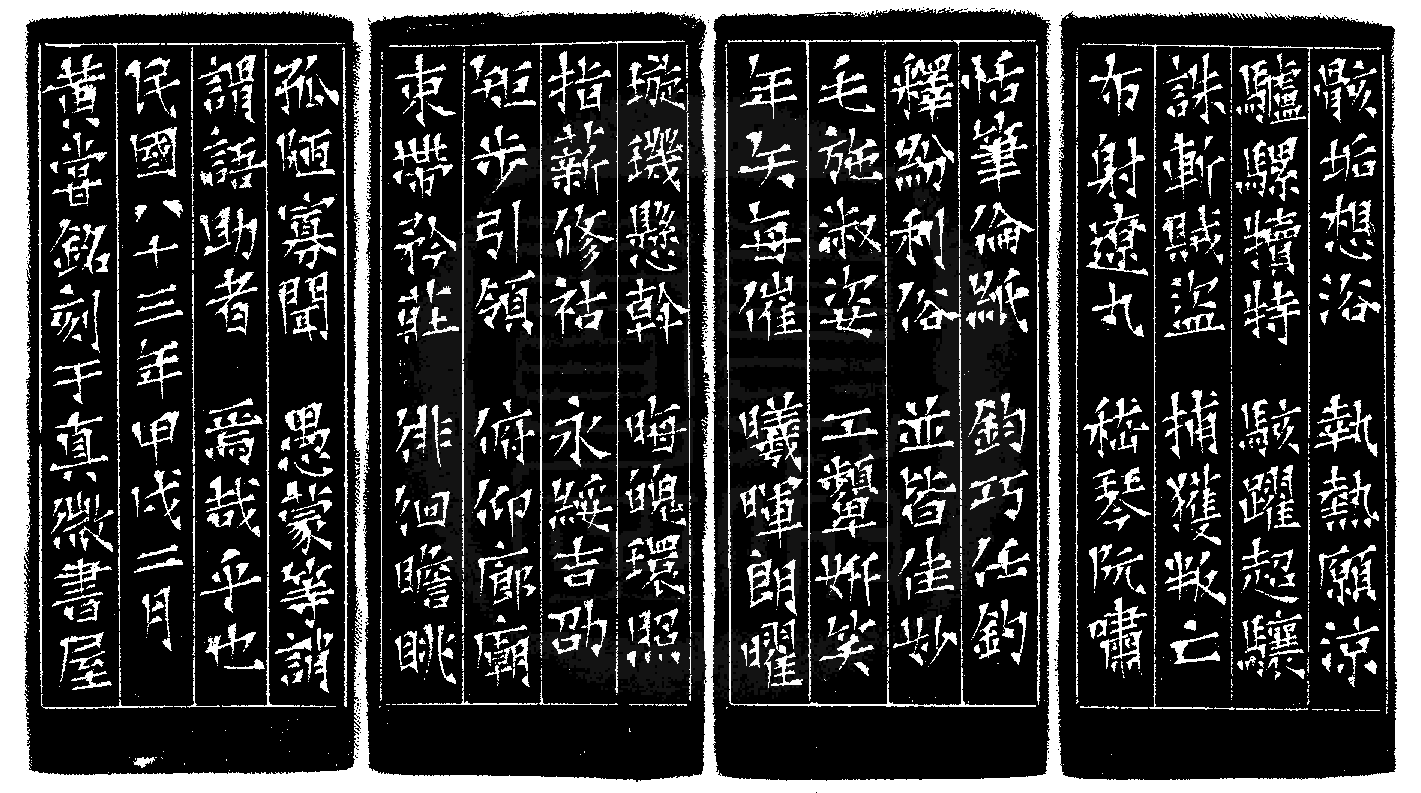 骸垢想浴　執熱願涼
驢騾犢特　駭躍超驤
誅斬賊盜　捕獲叛亡
布射遼丸　嵇琴阮嘯
恬筆倫紙　鈞巧任釣
釋紛利俗　並皆佳妙
毛施淑姿　工顰妍笑
年矢每催　曦暉朗曜
璇璣懸斡　晦魄環照
指薪修祜　永綏吉劭
矩步引領　俯仰廊廟
束帶矜莊　徘徊瞻眺
孤陋寡聞　愚蒙等誚
謂語助者　焉哉乎也
民國八十三年甲戌二月
黄嘗銘刻于真微書屋